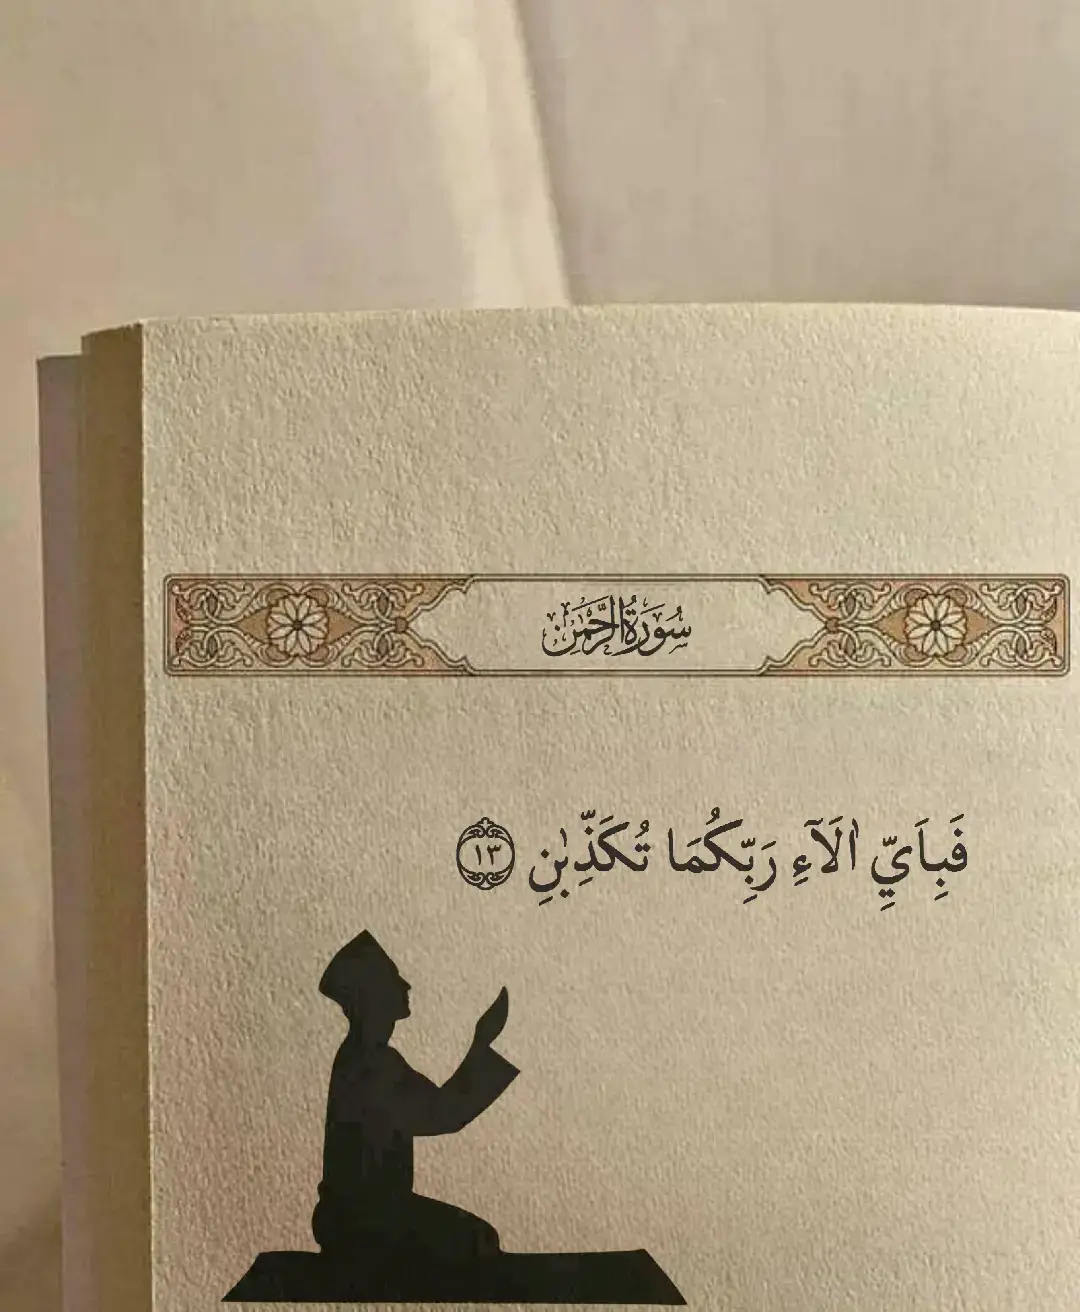 سُورَةُ الرَّحْمَٰن
فَبِاَيِّ اٰلَآءِ رَبِّكُمَا تُكَذِّبٰنِ ١٣